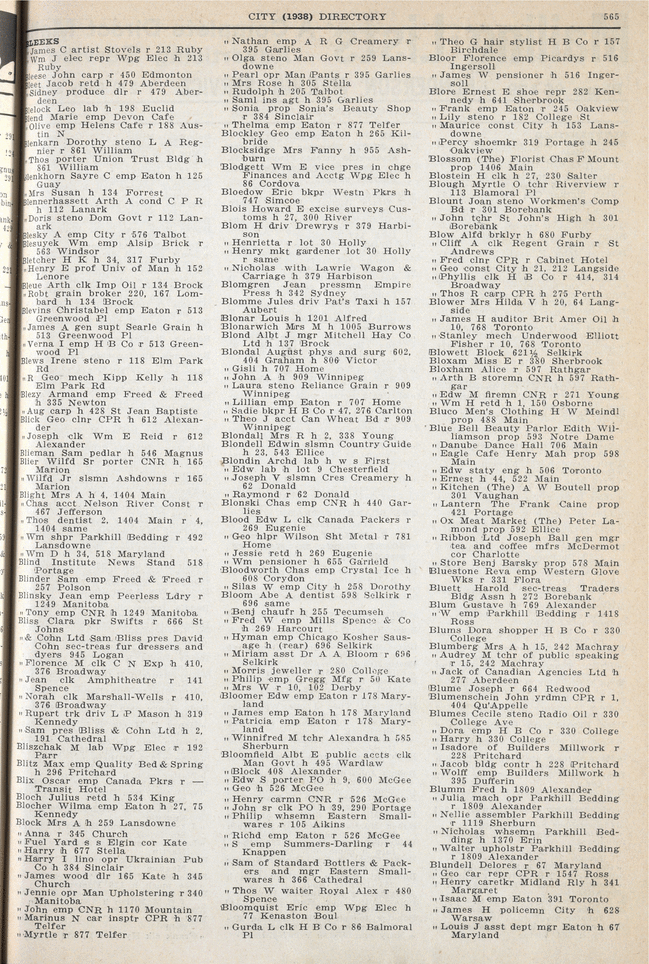 CITY (1938) DIRECTORY 565
LEEKS
James C artist Stovels r 213 Ruby
Wm J elec repr Wpg Elec h 213
Ruby
leese John carp r 450 Edmonton
leet Jacob retd h 479 Aberdeen
Sidney produce dlr r 479 Aber-
deen
lelock Leo lab h 198 Euclid
lend Marie emp Devon Cafe
Olive emp Helens Cafe r 188 Aus-
tin N
lenkarn Dorothy steno L A Reg-
nier r 861 William
Thos porter Union Trust Bldg h
861 William
lenkhorn Sayre C emp Eaton h 125
Guay
Mrs Susan h 134 Forrest
lennerhassett Arth A cond C P R
h 112 Lanark
Doris steno Dom Govt r 112 Lan-
ark
lesky A emp City r 576 Talbot
lesuyek Wm emp Alsip Brick r
563 Windsor
letcher H K h 34, 317 Furby
Henry E prof Univ of Man h 152
Lenore
leue Arth clk Imp Oil r 134 Brock
Robt grain broker 220, 167 Lom-
bard h 134 Brock
levins Christabel emp Eaton r 513
Greenwood Pl
James A gen supt Searle Grain h
513 Greenwood Pl
Verna I emp H B Co r 513 Green-
wood Pl
lews Irene steno r 118 Elm Park
Rd
R Geo mech Kipp Kelly h 118
Elm Park Rd
lezy Armand emp Freed & Freed
h 335 Newton
Aug carp h 428 St Jean Baptiste
Blick Geo clnr CPR h 612 Alexan-
der
Joseph clk Wm E Reid r 612
Alexander
Blieman Sam pedlar h 546 Magnus
Blier Wilfd Sr porter CNR h 165
Marion
" Wilfd Jr slsmn Ashdowns r 165
Marion
Blight Mrs A h 4, 1404 Main
" Chas acct Nelson River Const r
467 Jefferson
" Thos dentist 2, 1404 Main r 4,
1404 same
" Wm shpr Parkhill Bedding r 492
Lansdowne
" Wm D h 34, 518 Maryland
Blind Institute News Stand 518
Portage
Blinder Sam emp Freed & Freed r
257 Polson
Blinsky Jean emp Peerless Ldry r
1249 Manitoba
" Tony emp CNR h 1249 Manitoba
Bliss Clara pkr Swifts r 666 St
Johns
" & Cohn Ltd Sam Bliss pres David
Cohn sec-treas fur dressers and
dyers 945 Logan
" Florence M clk C N Exp h 410,
376 Broadway
" Jean clk Amphitheatre r 141
Spence
" Norah clk Marshall-Wells r 410,
376 Broadway
" Rupert trk driv L P Mason h 319
Kennedy
" Sam pres Bliss & Cohn Ltd h 2,
191 Cathedral
Bliszchak M lab Wpg Elec r 192
Parr
Blitz Max emp Quality Bed & Spring
h 296 Pritchard
Blix Oscar emp Canada Pkrs r —
Transit Hotel
Bloch Julius retd h 534 King
Blocher Wilma emp Eaton h 27, 75
Kennedy
Block Mrs A h 259 Lansdowne
" Anna r 345 Church
" Fuel Yard s s Elgin cor Kate
" Harry h 677 Stella
" Harry I lino opr Ukrainian Pub
Co h 384 Sinclair
" James wood dlr 165 Kate h 345
Church
" Jennie opr Man Upholstering r 340
Manitoba
" John emp CNR h 1170 Mountain
" Marinus N car insptr CPR h 877
Telfer
" Myrtle r 877 Telfer
" Nathan emp A R G Creamery r
395 Garlies
" Olga steno Man Govt r 259 Lans-
downe
" Pearl opr Man Pants r 395 Garlies
" Mrs Rose h 305 Stella
" Rudolph h 205 Talbot
" Saml ins agt h 395 Garlies
" Sonia prop Sonia's Beauty Shop
r 384 Sinclair
" Thelma emp Eaton r 877 Telfer
Blockley Geo emp Eaton h 265 Kil-
bride
Blocksidge Mrs Fanny h 955 Ash-
burn
Blodgett Wm E vice pres in chge
Finances and Acctg Wpg Elec h
86 Cordova
Bloedow Eric bkpr Westn Pkrs h
747 Simcoe
Blois Howard E excise surveys Cus-
toms h 27, 300 River
Blom H driv Drewrys r 379 Harbi-
son
" Henrietta r lot 30 Holly
" Henry mkt gardener lot 30 Holly
r same
" Nicholas with Lawrie Wagon &
Carriage h 379 Harbison
Blomgren Jean pressmn Empire
Press h 342 Sydney
Blomme Jules driv Pat's Taxi h 157
Aubert
Blonar Louis h 1201 Alfred
Blonarwich Mrs M h 1005 Burrows
Blond Albt J mgr Mitchell Hay Co
Ltd h 137 Brock
Blondal August phys and surg 602,
404 Graham h 806 Victor
" Gisli h 707 Home
" John A h 909 Winnipeg
" Laura steno Reliance Grain r 909
Winnipeg
" Lillian emp Eaton r 707 Home
" Sadie bkpr H B Co r 47, 276 Carlton
" Theo J acct Can Wheat Bd r 909
Winnipeg
Blondall Mrs R h 2, 338 Young
Blondell Edwin slsmn Country Guide
h 23, 543 Ellice
Blondin Archd lab h w s First
" Edw lab h lot 9 Chesterfield
" Joseph V slsmn Cres Creamery h
62 Donald
" Raymond r 62 Donald
Blonski Chas emp CNR h 440 Gar-
lies
Blood Edw L clk Canada Packers r
269 Eugenie
" Geo hlpr Wilson Sht Metal r 781
Home
" Jessie retd h 269 Eugenie
" Wm pensioner h 655 Garfield
Bloodworth Chas emp Crystal Ice h
608 Corydon
" Silas W emp City h 258 Dorothy
Bloom Abe A dentist 598 Selkirk r
696 same
" Benj chaufr h 255 Tecumseh
" Fred W emp Mills Spence & Co
h 269 Harcourt
" Hyman emp Chicago Kosher Saus-
age h (rear) 696 Selkirk
" Miriam asst Dr A A Bloom r 696
Selkirk
" Morris jeweller r 280 College
" Philip emp Gregg Mfg r 50 Kate
" Mrs W r 10, 102 Derby
Bloomer Edw emp Eaton r 178 Mary-
land
" James emp Eaton h 178 Maryland
" Patricia emp Eaton r 178 Mary-
land
" Winnifred M tchr Alexandra h 585
Sherburn
Bloomfield Albt E public accts clk
Man Govt h 495 Wardlaw
" Block 408 Alexander
" Edw S porter PO h 9, 600 McGee
" Geo h 526 McGee
" Henry carmn CNR r 526 McGee
" John sr clk PO h 39, 290 Portage
" Philip whsemn Eastern Small-
wares r 105 Aikins
" Richd emp Eaton r 526 McGee
" S emp Summers-Darling r 44
Knappen
" Sam of Standard Bottlers & Pack-
ers and mgr Eastern Small-
wares h 366 Cathedral
" Thos W waiter Royal Alex r 480
Spence
Bloomquist Eric emp Wpg Elec h
77 Kenaston Boul
" Gurda L clk H B Co r 86 Balmoral
Pl
" Theo G hair stylist H B Co r 157
Birchdale
Bloor Florence emp Picardys r 516
Ingersoll
" James W pensioner h 516 Inger-
soll
Blore Ernest E shoe repr 282 Ken-
nedy h 641 Sherbrook
" Frank emp Eaton r 245 Oakview
" Lily steno r 182 College St
" Maurice const City h 153 Lans-
downe
" Percy shoemkr 319 Portage h 245
Oakview
Blossom (The) Florist Chas F Mount
prop 1406 Main
Blostein H clk h 27, 230 Salter
Blough Myrtle O tchr Riverview r
113 Blamoral Pl
Blount Joan steno Workmen's Comp
Bd r 301 Borebank
" John tchr St John's High h 301
Borebank
Blow Alfd brklyr h 680 Furby
" Cliff A clk Regent Grain r St
Andrews
" Fred clnr CPR r Cabinet Hotel
" Geo const City h 21, 212 Langside
" Phyllis clk H B Co r 414, 314
Broadway
" Thos R carp CPR h 275 Perth
Blower Mrs Hilda V h 20, 64 Lang-
side
" James H auditor Brit Amer Oil h
10, 768 Toronto
" Stanley mech Underwood Elliott
Fisher r 10, 768 Toronto
Blowett Block 621½ Selkirk
Bloxam Miss E r 380 Sherbrook
Bloxham Alice r 597 Rathgar
" Arth B storemn CNR h 597 Rath-
gar
" Edw M firemn CNR r 271 Young
" Wm H retd h 1, 150 Osborne
Bluco Men's Clothing H W Meindl
prop 488 Main
Blue Bell Beauty Parlor Edith Wil-
liamson prop 593 Notre Dame
" Danube Dance Hall 706 Main
" Eagle Cafe Henry Mah prop 598
Main
" Edw staty eng h 506 Toronto
" Ernest h 44, 522 Main
" Kitchen (The) A W Boutell prop
301 Vaughan
" Lantern The Frank Caine prop
421 Portage
" Ox Meat Market (The) Peter La-
mond prop 592 Ellice
" Ribbon Ltd Joseph Ball gen mgr
tea and coffee mfrs McDermot
cor Charlotte
" Store Benj Barsky prop 578 Main
Bluestone Reva emp Western Glove
Wks r 331 Flora
Bluett Harold sec-treas Traders
Bldg Assn h 272 Borebank
Blum Gustave h 769 Alexander
" W emp Parkhill Bedding r 1418
Ross
Blums Dora shopper H B Co r 330
College
Blumberg Mrs A h 15, 242 Machray
" Audrey M tchr of public speaking
r 15, 242 Machray
" Jack of Canadian Agencies Ltd h
277 Aberdeen
Blume Joseph r 664 Redwood
Blumenschein John yrdmn CPR r 1,
404 Qu'Appelle
Blumes Cecile steno Radio Oil r 330
College Ave
" Dora emp H B Co r 330 College
" Harry h 330 College
" Isadore of Builders Millwork r
228 Pritchard
" Jacob bldg contr h 228 Pritchard
" Wolff emp Builders Millwork h
395 Dufferin
Blumm Fred h 1809 Alexander
" Julia mach opr Parkhill Bedding
r 1809 Alexander
" Nellie assembler Parkhill Bedding
r 1119 Sherburn
" Nicholas whsemn Parkhill Bed-
ding h 1370 Erin
" Walter upholstr Parkhill Bedding
r 1809 Alexander
Blundell Delores r 67 Maryland
" Geo car repr CPR r 1547 Ross
" Henry caretkr Midland Rly h 341
Margaret
" Isaac M emp Eaton 391 Toronto
" James H policemn City h 628
Warsaw
" Louis J asst dept mgr Eaton h 67
Maryland